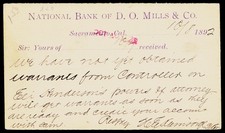 NATIONAL BANK OF D. O. MILLS & CO.
Sacramento, Cal. 10/8 1892
Sir: Yours of received.
We have not yet obtained
warrants from Controller on
Ed. Anderson's powers of attorney
will get warrants as soon as they
are ready and credit your account
with same.